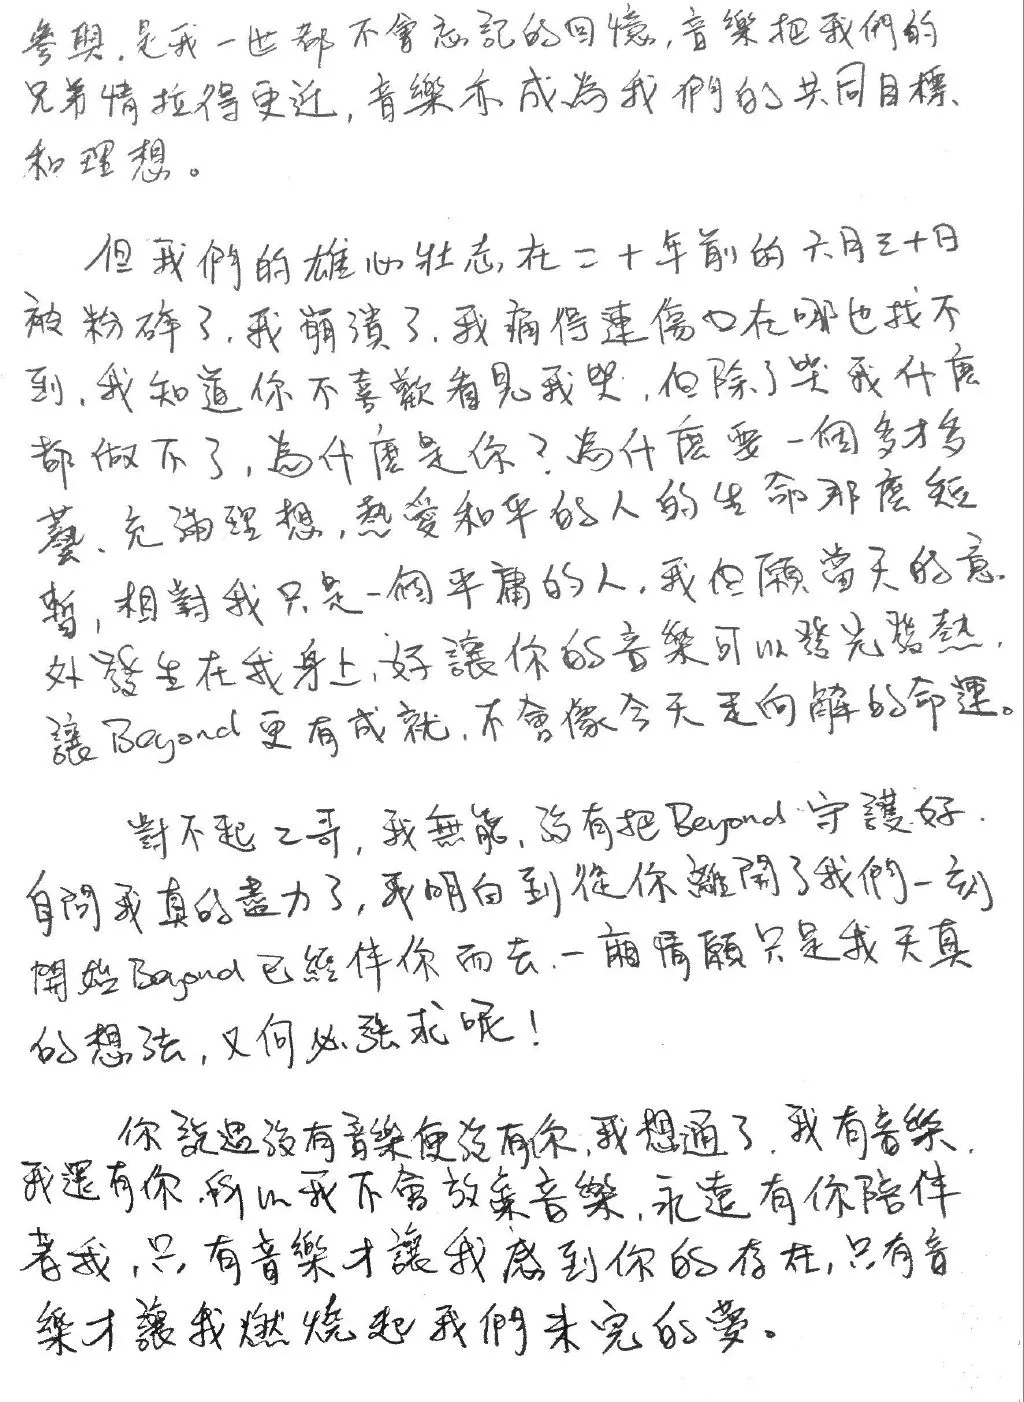 參與，是我一世都不會忘記的回憶，音樂把我們的
兄弟情拉得更近，音樂亦成為我們的共同目標、
和理想。
但我們的雄心壯志在二十年前的六月三十日
被粉碎了，我崩潰了，我痛得連傷口在哪也找不
到，我知道你不喜歡看見我哭，但除了哭我什麼
都做不了，為什麼是你？為什麼要一個多才多
藝、充滿理想，熱愛和平的人的生命那麼短
暫，相對我只是一個平庸的人，我但願當天的意
外發生在我身上，好讓你的音樂可以發光發熱，
讓Beyond更有成就，不會像今天走向解的命運。
對不起乙哥，我無能，沒有把Beyond守護好，
自問我真的盡力了，我明白到從你離開了我們一刻
開始Beyond已經伴你而去，一廂情願只是我天真
的想法，又何必強求呢！
你說過沒有音樂便沒有你，我想通了，我有音樂，
我還有你，所以我不會放棄音樂，永遠有你陪伴
著我，只有音樂才讓我感到你的存在，只有音
樂才讓我燃燒起我們未完的夢。